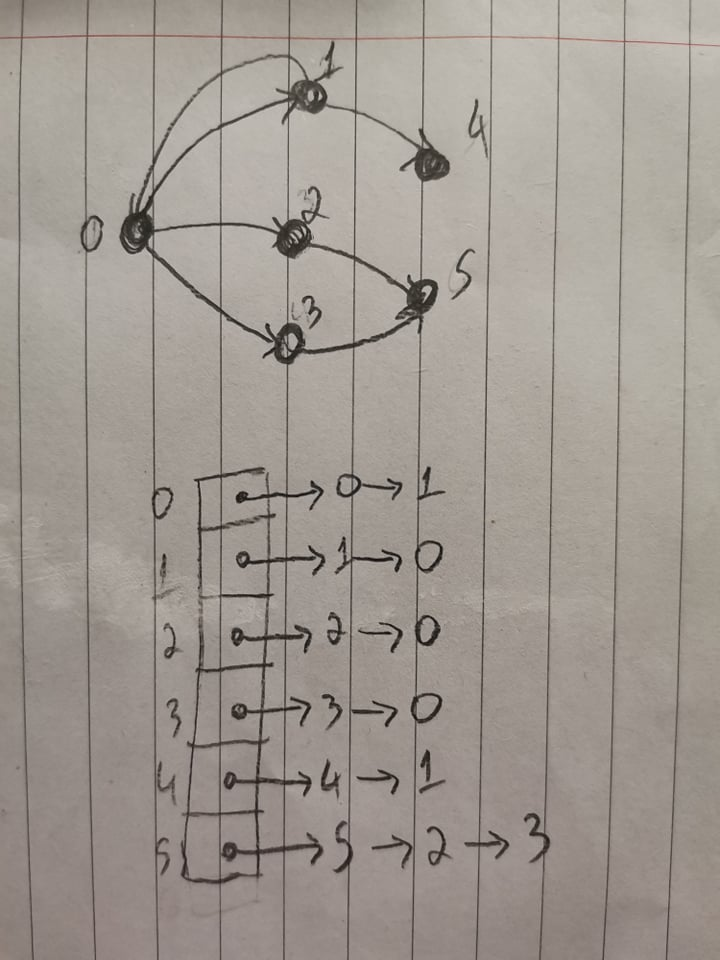 1
4
0
2
5
3
0 → 0 → 1
1 → 1 → 0
2 → 2 → 0
3 → 3 → 0
4 → 4 → 1
5 → 5 → 2 → 3